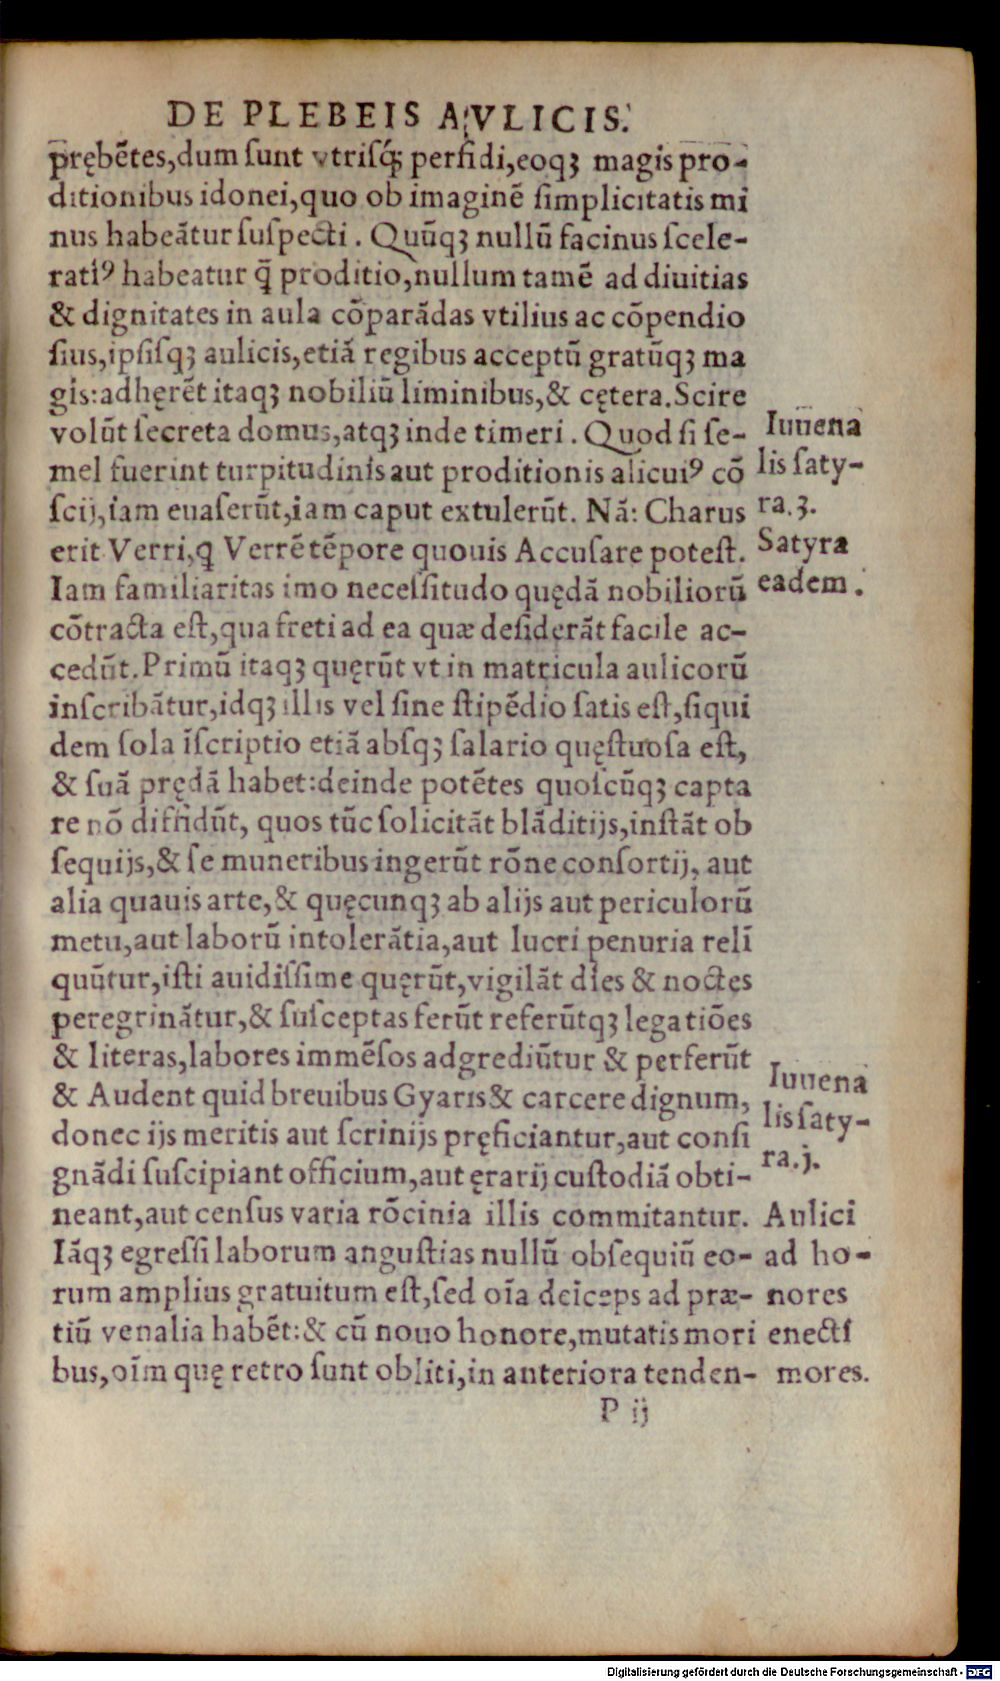 DE PLEBEIS AVLICIS.
prębẽtes,dum sunt vtrisq́; perfidi,eoqꝫ magis pro-
ditionibus idonei,quo ob imaginẽ simplicitatis mi
nus habeãtur suspecti. Quũqꝫ nullũ facinus scele-
ratiꝰ habeatur q̃ proditio,nullum tamẽ ad diuitias
& dignitates in aula cõparãdas vtilius ac cõpendio
sius,ipsisqꝫ aulicis,etiã regibus acceptũ gratũqꝫ ma
gis:adhęrẽt itaqꝫ nobiliũ liminibus,& cętera.Scire
volũt secreta domus,atqꝫ inde timeri. Quod si se-
mel fuerint turpitudinis aut proditionis alicuiꝰ cõ
scij,iam euaserũt,iam caput extulerũt. Nã: Charus
erit Verri,q Verrẽ tẽpore quouis Accusare potest.
Iam familiaritas imo necessitudo quędã nobiliorũ
cõtracta est,qua freti ad ea quæ desiderãt facile ac-
cedũt.Primũ itaqꝫ quęrũt vt in matricula aulicorũ
inscribãtur,idqꝫ illis vel sine stipẽdio satis est,siqui
dem sola ĩscriptio etiã absqꝫ salario quęstuosa est,
& suã prędã habet:deinde potẽtes quoscũqꝫ capta
re nõ diffidũt, quos tũc solicitãt blãditijs,instãt ob
sequijs,& se muneribus ingerũt rõne consortij, aut
alia quauis arte,& quęcunqꝫ ab alijs aut periculorũ
metu,aut laborũ intolerãtia,aut lucri penuria relĩ
quũtur,isti auidissime quęrũt,vigilãt dies & noctes
peregrinãtur,& susceptas ferũt referũtqꝫ legatiões
& literas,labores immẽsos adgrediũtur & perferũt
& Audent quid breuibus Gyaris& carcere dignum,
donec ijs meritis aut scrinijs pręficiantur,aut consi
gnãdi suscipiant officium,aut ęrarij custodiã obti-
neant,aut census varia rõcinia illis commitantur.
Iãqꝫ egressi laborum angustias nullũ obsequiũ eo-
rum amplius gratuitum est,sed oĩa deĩceps ad præ-
tiũ venalia habẽt:& cũ nouo honore,mutatis mori
bus,oĩm quę retro sunt obliti,in anteriora tenden-
P ij
Iuuena
lis saty-
ra.3.
Satyra
eadem.
Iuuena
lis saty-
ra.j.
Aulici
ad ho-
nores
enecti
mores.
Digitalisierung gefördert durch die Deutsche Forschungsgemeinschaft - DFG